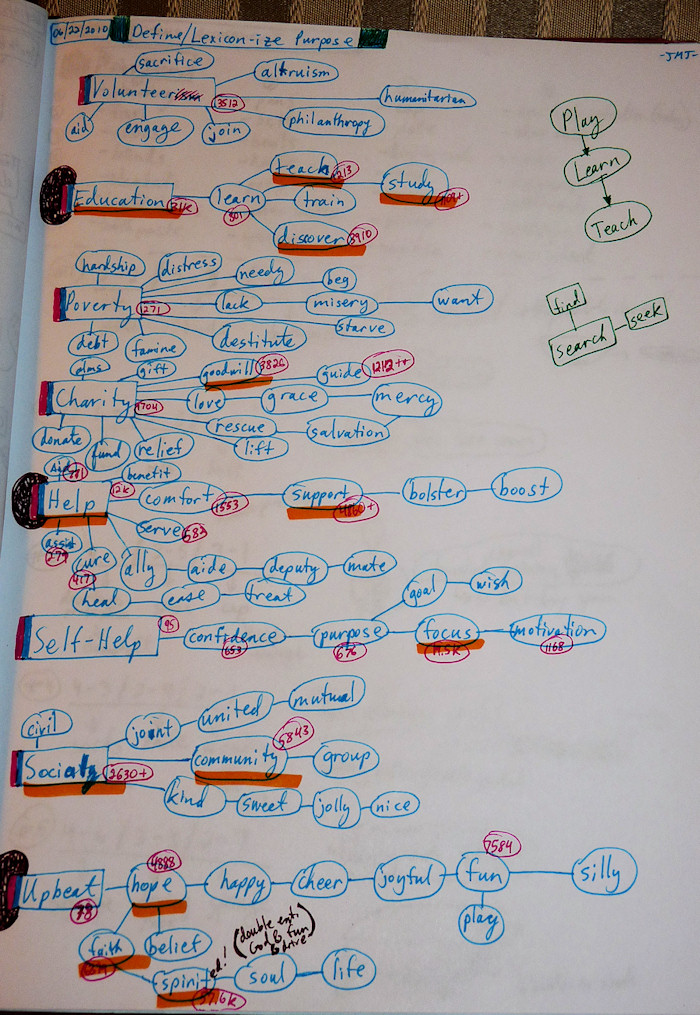 06/22/2010 Define/Lexicon-ize Purpose
-JMJ-
sacrifice
altruism
Volunteer
3512
humanitarian
aid
engage
join
philanthropy
Play
Learn
Teach
Education
learn
801
teach
1213
study
train
discover
3910
hardship
distress
needy
beg
Poverty
1271
lack
misery
want
starve
debt
famine
destitute
find
search
seek
alms
gift
goodwill
3826
guide
1212++
Charity
love
grace
mercy
rescue
salvation
donate
fund
relief
lift
Aid
benefit
Help
12k
comfort
1553
support
bolster
boost
serve
583
assist
cure
417
ally
aide
deputy
mate
heal
ease
treat
Self-Help
95
confidence
653
purpose
676
goal
wish
focus
motivation
1168
civil
joint
united
mutual
Society
2630+
community
5843
group
kind
sweet
jolly
nice
Upbeat
78
hope
4888
happy
cheer
joyful
fun
7584
silly
play
faith
belief
spirited!
(double ent. God & fun & drive)
soul
life